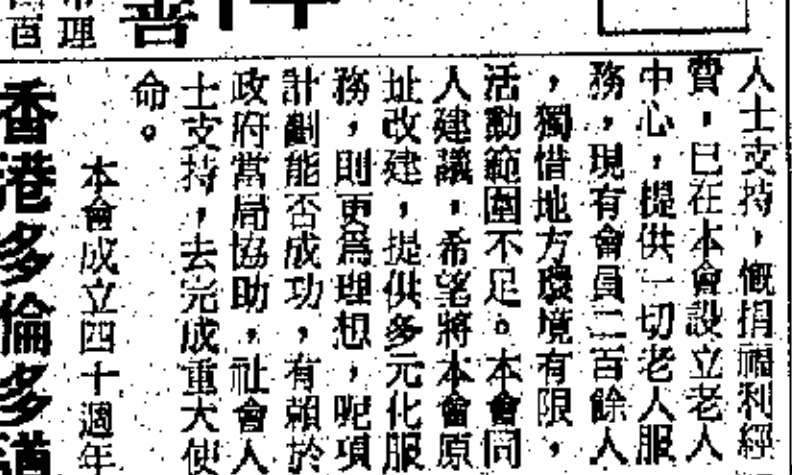 人士支持，慨捐福利經
費，已在本會設立老人
中心，提供一切老人服
務，現有會員二百餘人
，獨惜地方環境有限，
活動範圍不足。本會同
人建議，希望將本會原
址改建，提供多元化服
務，則更爲理想，呢項
計劃能否成功，有賴於
政府當局協助，社會人
士支持，去完成重大使
命。
本會成立四十週年
香港多倫多